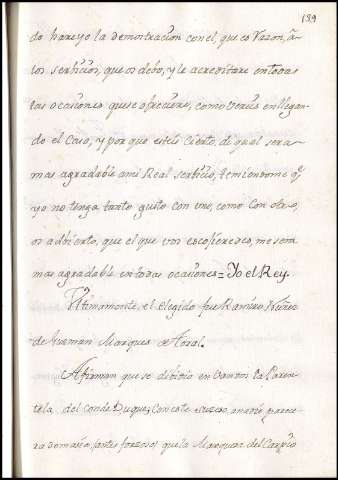 189
do hareyo la demostracion con el, que es razon, á
los serbicios, que os debo, y le acreditare en todas
las ocasiones que se ofrecieren, como vereis en llegan-
do el caso, y por que esteis cierto, de qual sera
mas agradable a mi Real serbicio, temiendome q.
yo no tenga tanto gusto con uno, como con otro,
os adbierto, que el que vos escojieredes, me sera
mas agradable en todas ocasiones = Yo el Rey.
Ultimamente, el elegido fue Ramiro Nuñez
de Guzman Marques de Toral.
Afirman que se dibidio en vandos la Paren-
tela del Conde Duque; Con este suzeso, a nadie parece-
ra que la Marquesa del Carpio